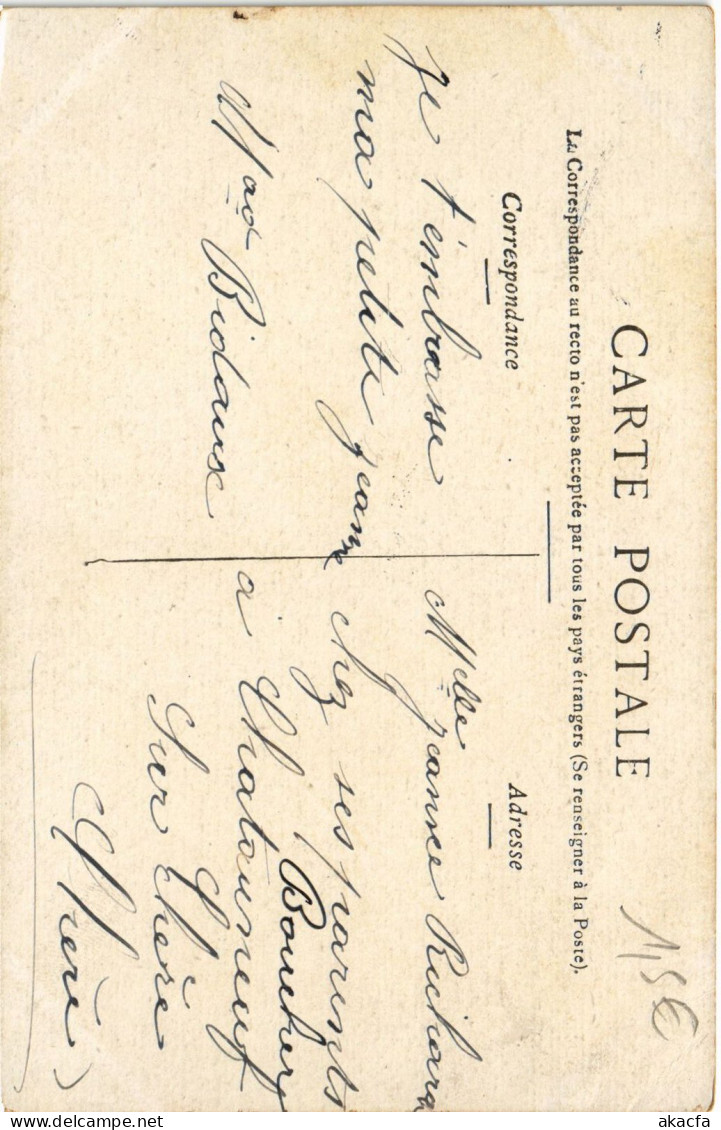 CARTE POSTALE
La Correspondance au recto n'est pas acceptée par tous les pays étrangers (Se renseigner à la Poste).
Correspondance
Je t'embrasse
ma petite jeanne
Mad Bidaux
Adresse
Melle Jeanne Richard
chez ses parents
Boucher
à Chatauneuf
Sur Chère
(Chère)
1,5€
akacfa
www.delcampe.net